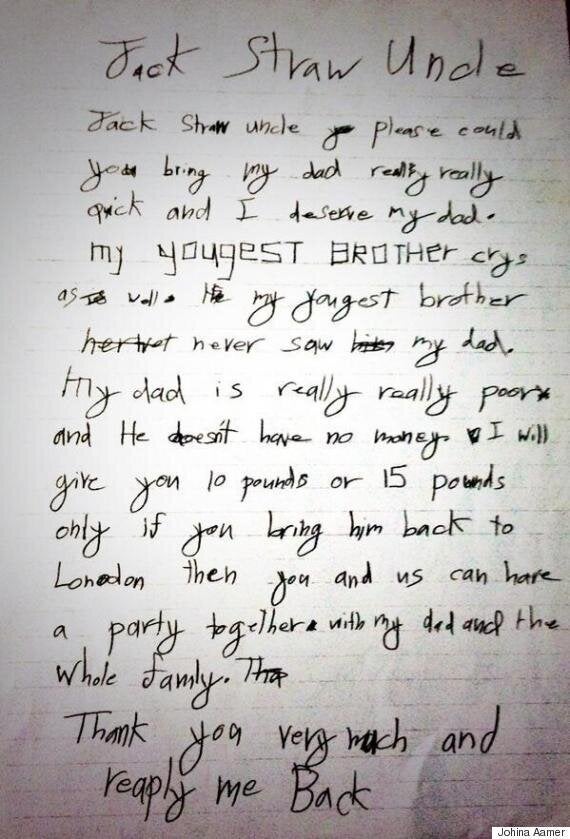 Jack Straw Uncle
Jack Straw uncle please could
you bring my dad really really
quick and I deserve my dad.
my yougest BROTHER crys
as well. my yougest brother
never saw my dad.
My dad is really really poor
and He doesn't have no money. I will
give you 10 pounds or 15 pounds
only if you bring him back to
Lonodon then you and us can have
a party together. with my dad and the
whole famly.
Thank you very much and
reaply me Back
Johina Aamer